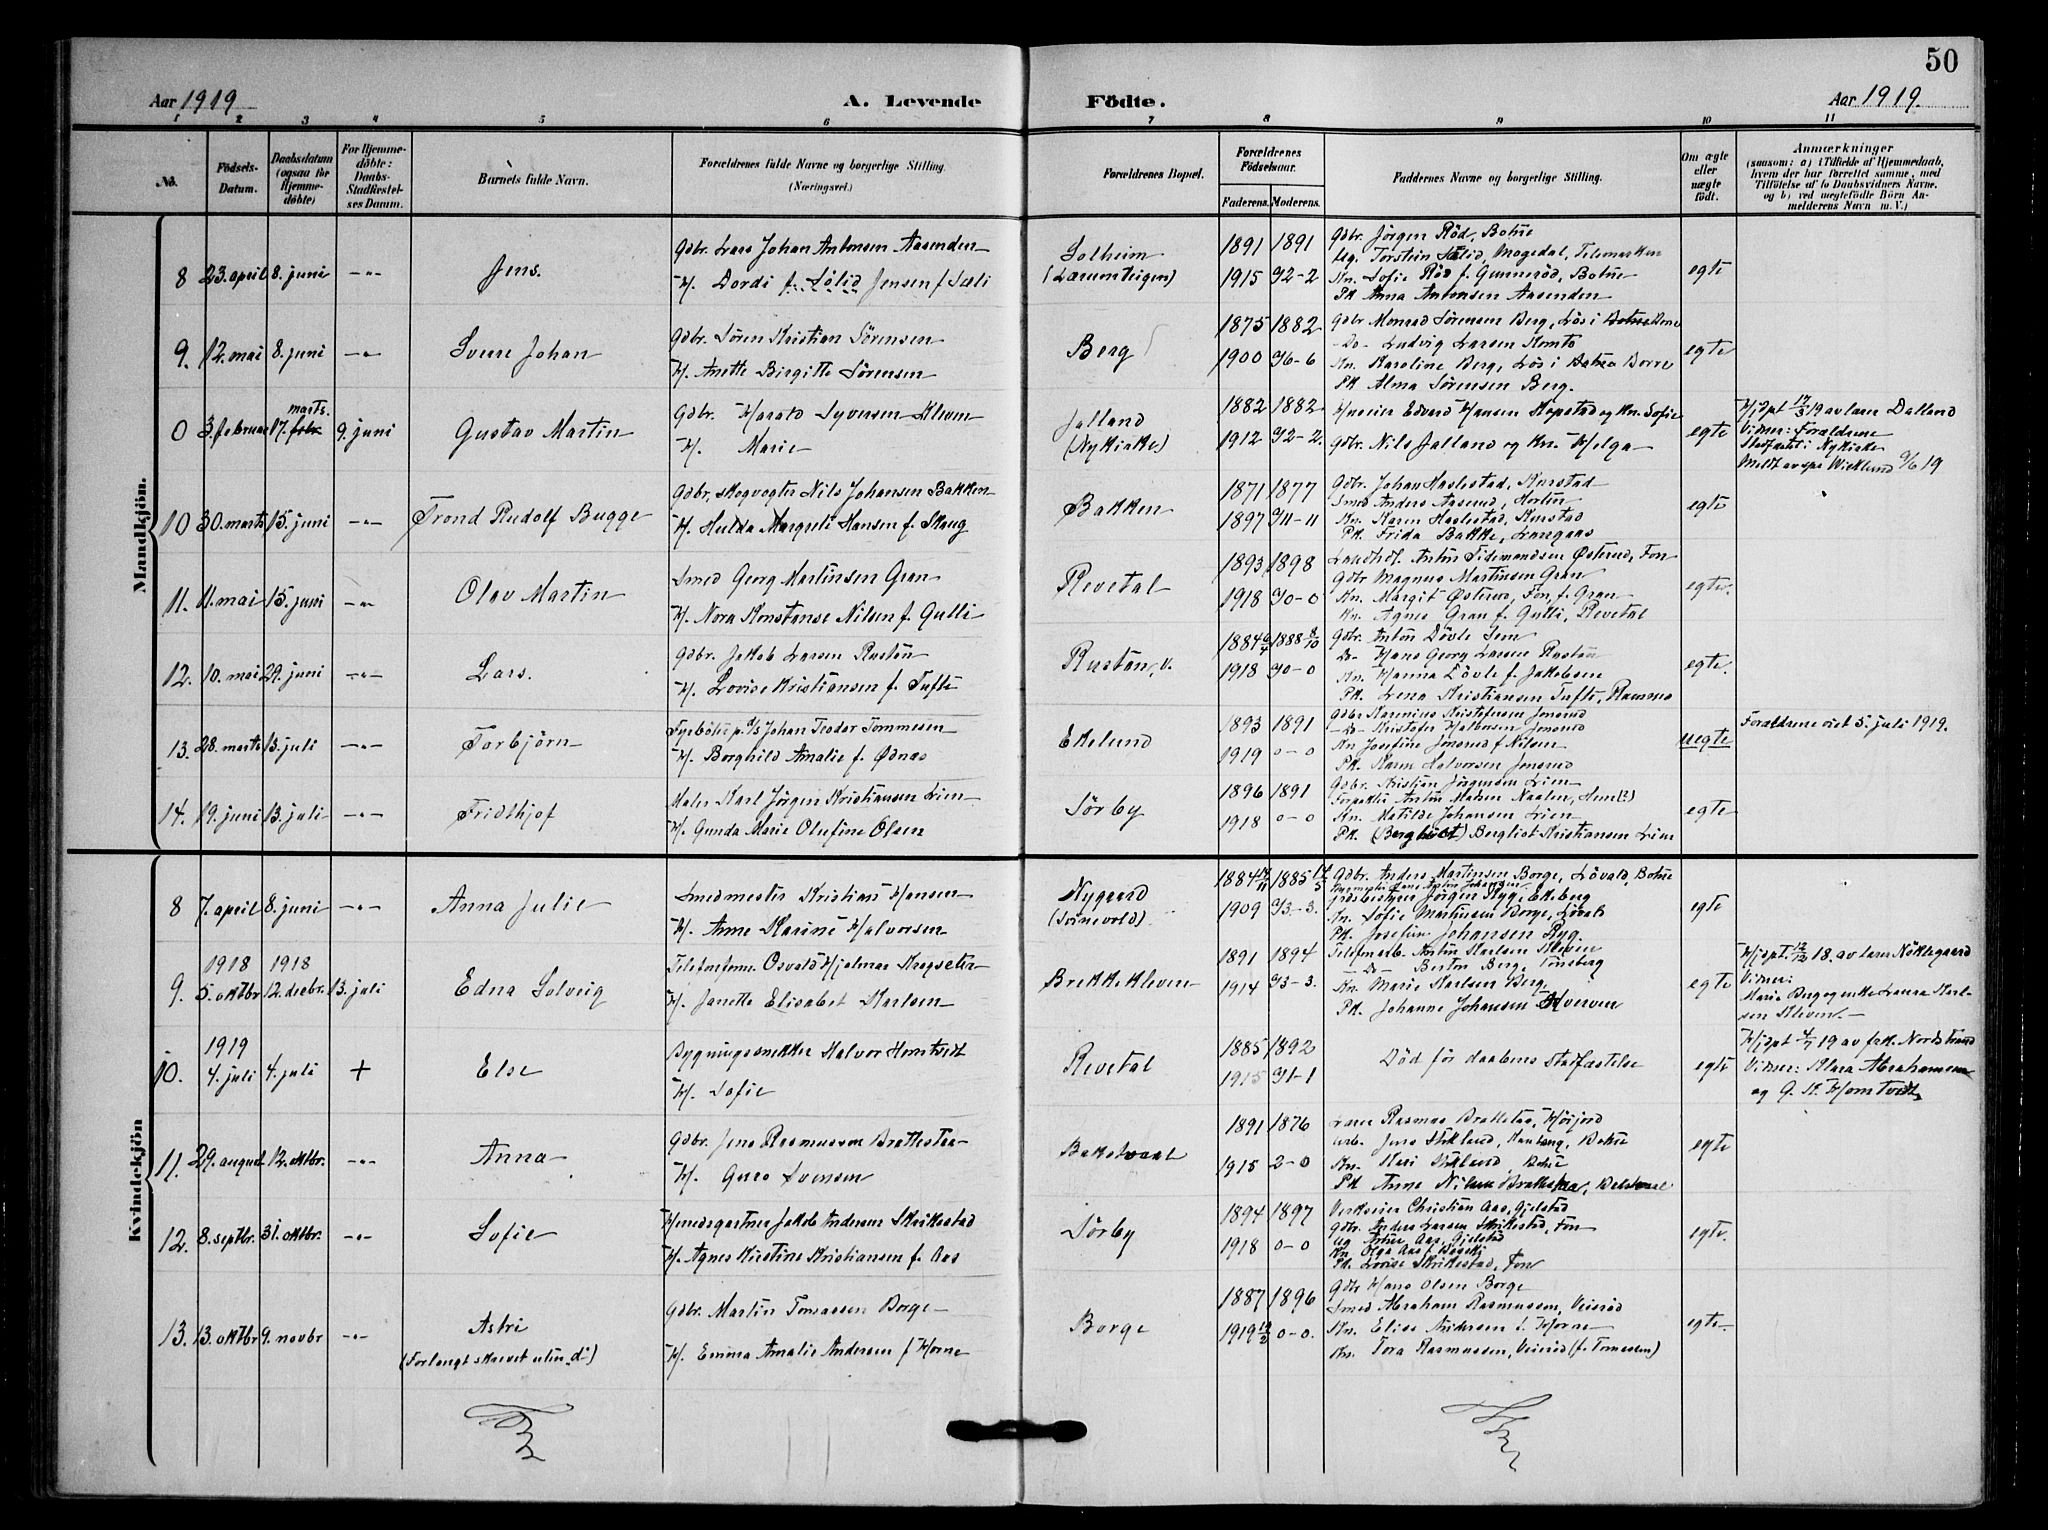 50
Aar 1919
A. Levende
Födte.
Aar 1919.
1 2 3 4 5 6 7 8 9 10 11
No.
Födsels-
Datum.
Daabsdatum
(ogsaa for
Hjemme-
döbte)
For Hjemme-
döbte:
Daabs-
Stadfæstel-
ses Datum.
Barnets fulde Navn.
Forældrenes fulde Navne og borgerlige Stilling.
(Næringsvei.)
Forældrenes Bopæl.
Forældrenes
Födselsaar.
Faderens. Moderens.
Faddernes Navne og borgerlige Stilling.
Om ægte
eller
uægte
födt.
Anmærkninger
(saasom: a) i Tilfælde af Hjemmedaab,
hvem der har forrettet samme, med
Tilföielse af to Daabsvidners Navne.
og b) ved uægtefödte Börn An-
melderens Navn m. V.)
Mandkjön.
8 23. april 8. juni -"- Jens.
Gdbr. Lars Johan Antonsen Aasenden
H. Dordi f. Sölid Jensen f. Sæli
Solheim
(Lærumteigen)
1891 1891
1915 2-2
Gdbr. Jörgen Röd, Botne
Ug. Torstein Sölid, Mogedal, Telemarken
Kn. Sofie Röd f. Gunneröd, Botne
Pk Anna Antonsen Aasenden
egte
9. 12. mai 8. juni -"- Sverre Johan
Gdbr. Sören Kristian Sörensen
H. Anette Birgitte Sörensen
Berg
1875 1882
1900 6-6
Gdbr Monrad Sörensen Berg, Lös i Botne
-Do- Ludvig Larsen Komto
Kn. Karoline Berg, Lös i Botne Borre
Pk Alma Sörensen Berg.
egte
0 3. februar 17. febr. marts. 9. juni Gustav Martin
Gdbr. Harald Syversen Kleven
H. Marie
Jalland
(Nykirke)
1882 1882
1912 2-2.
Huseier Edvard Hansen Kopstad og Kn. Sofie
Gdbr. Nils Jalland og Kn. Helga
egte
Hjdpt 17/3 19 av lærer Dalland
Vidner: Forældrene
Stadfæstet i Nykirke
Meldt av spr Wicklund 9/6 19
10 30. marts 15. juni -"- Trond Rudolf Bugge
Gdbr, skogvogter Nils Johansen Bakken
H. Hulda Marguli Hansen f. Skaug
Bakken
1871 1877
1897 11-11
Gdbr. Johan Haslestad, Kurstad
Smed Anders Aaserud, Horten
Kn. Karen Haslestad, Kurstad
Pk. Frida Bakke, Langaas
egte
11. 11. mai 15. juni -"- Olav Martin
Smed Georg Martinsen Gran
H. Nora Konstanse Nilsen f. Gulli
Revetal
1893 1898
1918 0-0
Landhdl. Anton Tidemandsen Österud, Fon
Gdbr Magnus Martinsen Gran
Kn. Margit Österud, Fon, f. Gran
Kn. Agnes Gran f. Gulli, Revetal
egte.
12. 10. mai 29. juni -"- Lars.
Gdbr. Jakob Larsen Rustan
H. Lovise Kristiansen f. Tufte
Rustan, v.
1884 1888 8/10
1918 0-0
Gdbr. Anton Dövle Sem
Do- Hans Georg Larsen Rustan
Kn. Hanna Dövle f. Jakobsen
Pk. Lena Kristiansen Tufte, Ramnes
egte.
13. 28. marts 13. juli -"- Torbjörn
Fyrböter p. d/s Johan Teodor Tommesen
H. Borghild Amalie f. Ödnas
Ekelund
1893 1891
1919 0-0
Gdbr Karenius Kristofersen Jonsrud
-Do- Kristofer Halvorsen Jonsrud
Kn Josefine Jonsrud f Nilsen
Pk. Karen Halvorsen Jonsrud
uegte
Forældrene viet 5. juli 1919.
14. 19. juni 13. juli -"- Fridthjof
Maler Karl Jörgen Kristiansen Lien
H. Gunda Marie Olufine Olsen
Sörby
1896 1891
1918 0-0
Gdbr. Kristian Jörgensen Lien
Forpakter Anton Madsen Naalen, Hem
Kn. Matilde Johansen Lien
Pk. Bergliot Kristiansen Lien
egte
Kvindekjön
8 7. april 8. juni -"- Anna Julie
Smedmester Kristian Hansen
H. Anne Karine Halvorsen
Nygaard
(Svinevold)
1884 1885
1909 3-3.
Gdbr. Anders Martinsen Borge, Lövald, Botne
Gdsbestyrer Jörgen Ryg, Ekeberg
Kn. Sofie Martinsen Borge, Lövald
Pk. Josefine Johansen Ryg
egte
9. 1918 5. oktbr 1918 12. decbr. 13. juli Edna Solveig
Telefonform. Osvald Hjalmar Kragseter
H. Janette Elisabet Karlsen
Brekke Kleven
1891 1894
1914 3-3.
Telefonarb. Anton Karlsen Kleven
-Do- Berton Berg, Tönsberg
Kn. Marie Karlsen Berg
Pk. Johanne Johansen Kverven
egte
Hjdpt. 12/12 18. av lærer Nöklegaard
Vidner:
Marie Berg og enke Laura Karl-
sen Kleven.-
10. 1919 4. juli 4. juli + Else
Bygningssnekker Halvor Homtvedt
H. Sofie
Revetal
1885 1892
1915 1-1
Död för daabens stadfæstelse
egte
Hjdpt 4/7 19 av frk. Nordstrand
Vidner: Klara Abrahamsen
og G. K. Homtvedt
11. 29. august 12. oktbr. -"- Anna
Gdbr. Jens Rasmussen Brattestaa
H. Guro Svensen
Bakstvaal
1891 1876
1915 2-0
Lærer Rasmus Brattetaa, Hörjord
Arb. Jens Stiklund, Botne
Kn. Kari Stiklund, Botne
Pk Anne Nilsen Brattestaa
egte
12. 8. septbr. 31. oktbr. -"- Sofie
Herredsgartner Jakob Andersen Skrikestad
H. Agnes Kirstine Kristiansen f. Aas
Sörby
1894 1897
1918 0-0
Verkseier Christian Aas, Gjelstad
Gdbr. Anders Larsen Skrikestad, Fon
Ug Artur Aas, Gjelstad
Kn Olga Aas
Pk. Lovise Skrikestad, Fon
egte.
13. 13. oktbr 9. novbr -"- Astri
(Forlangt skrevet uten „d“)
Gdbr. Martin Tomassen Borge
H. Emma Amalie Andersen f Horne
Borge
1887 1896
1919 0-0.
Gdbr Hans Olsen Borge
Smed Abraham Rasmussen, Veieröd
Kn. Elise Andersen f. Horne
Kn. Tora Rasmussen, Veieröd (f. Tomessen)
egte